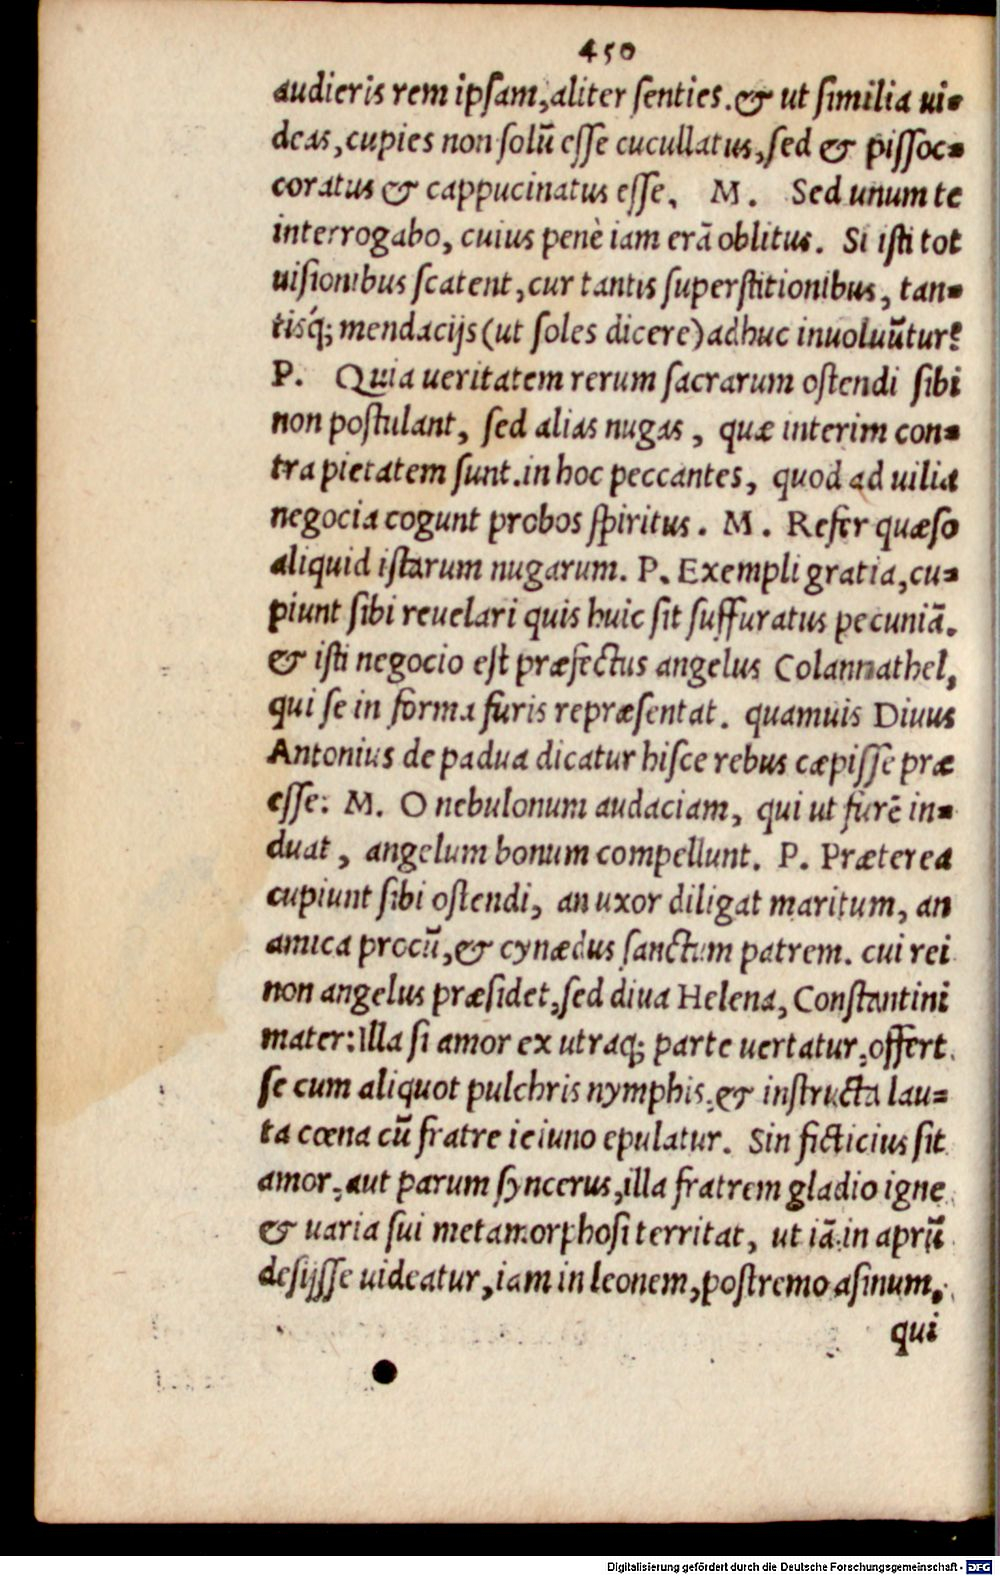 450
audieris rem ipsam, aliter senties. & ut similia ui=
deas, cupies non solū esse cucullatus, sed & pissoc=
coratus & cappucinatus esse. M. Sed unum te
interrogabo, cuius penè iam erā oblitus. Si isti tot
uisionibus scatent, cur tantis superstitionibus, tan=
tisq́; mendacijs (ut soles dicere) adhuc inuoluūtur?
P. Quia ueritatem rerum sacrarum ostendi sibi
non postulant, sed alias nugas, quæ interim con=
tra pietatem sunt. in hoc peccantes, quod ad uilia
negocia cogunt probos spiritus. M. Refer quæso
aliquid istarum nugarum. P. Exempli gratia, cu=
piunt sibi reuelari quis huic sit suffuratus pecuniā.
& isti negocio est præfectus angelus Colannathel,
qui se in forma furis repræsentat. quamuis Diuus
Antonius de padua dicatur hisce rebus cæpisse præ
esse. M. O nebulonum audaciam, qui ut furē in=
duat, angelum bonum compellunt. P. Præterea
cupiunt sibi ostendi, an uxor diligat maritum, an
amica procū, & cynædus sanctum patrem. cui rei
non angelus præsidet, sed diua Helena, Constantini
mater: Illa si amor ex utraq; parte uertatur, offert
se cum aliquot pulchris nymphis. & instructa lau=
ta cœna cū fratre ieiuno epulatur. Sin ficticius sit
amor, aut parum syncerus, illa fratrem gladio igne
& uaria sui metamorphosi territat, ut iā in aprū
desijsse uideatur, iam in leonem, postremo asinum,
qui
Digitalisierung gefördert durch die Deutsche Forschungsgemeinschaft - DFG